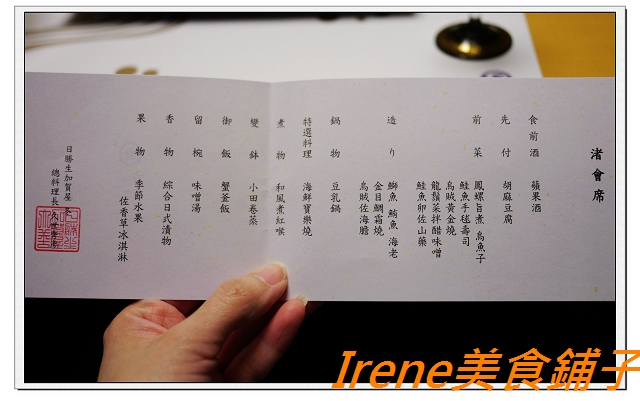 渚會席
食前酒 蘋果酒
先付 胡麻豆腐
前菜 鳳螺旨煮 烏魚子
鮭魚手毬壽司
烏賊黃金燒
龍鬚菜拌醋味噌
鮭魚卵佐山藥
造り 鰤魚 鮪魚 海老
金目鯛霜燒
烏賊佐海膽
鍋物 豆乳鍋
特選料理 海鮮寶樂燒
煮物 和風煮紅喉
變鉢 小田卷蒸
御飯 蟹釜飯
留椀 味噌湯
香物 綜合日式漬物
果物 季節水果
佐香草冰淇淋
日勝生加賀屋
總料理長
Irene美食鋪子